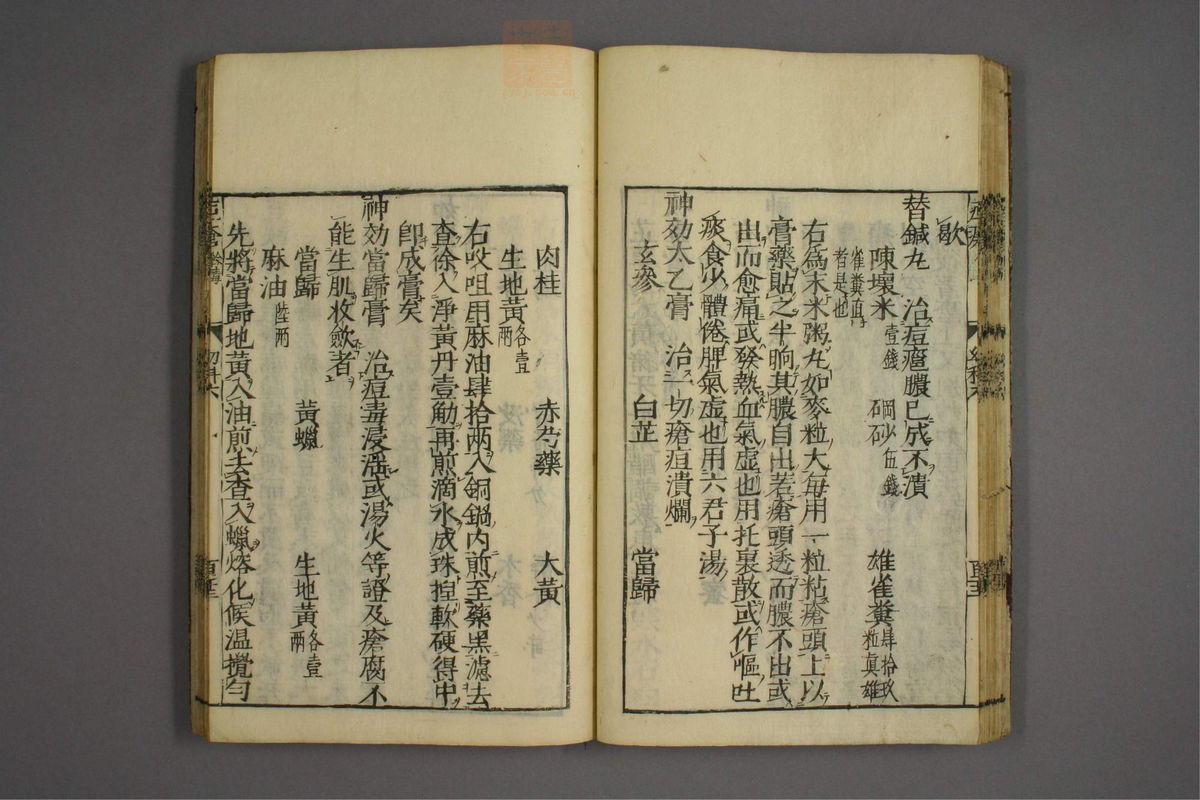 歇
替鍼丸 治痘癰膿已成不潰
陳壞米壹錢 硇砂伍錢 雄雀糞肆拾玖粒眞雄
雀糞直者是也
右爲末米粥丸如麥粒大每用一粒粘瘡頭上以
膏藥貼之半晌其膿自出若瘡頭透而膿不出或
出而愈痛或發熱血氣虛也用托裏散或作嘔吐
痰食少體倦脾氣虛也用六君子湯
神効太乙膏 治一切瘡疽潰爛
玄參 白芷 當歸
肉桂 赤芍藥 大黃
生地黃各壹兩
右㕮咀用麻油肆拾兩入銅鍋內煎至藥黑濾去
査徐入淨黃丹壹觔再煎滴水成珠揑軟硬得中
卽成膏矣
神効當歸膏 治痘毒浸淫或湯火等證及瘡腐不
能生肌收斂者
當歸 黃蠟 生地黃各壹兩
麻油陸兩
先將當歸地黃入油煎去査入蠟熔化候温攪勻